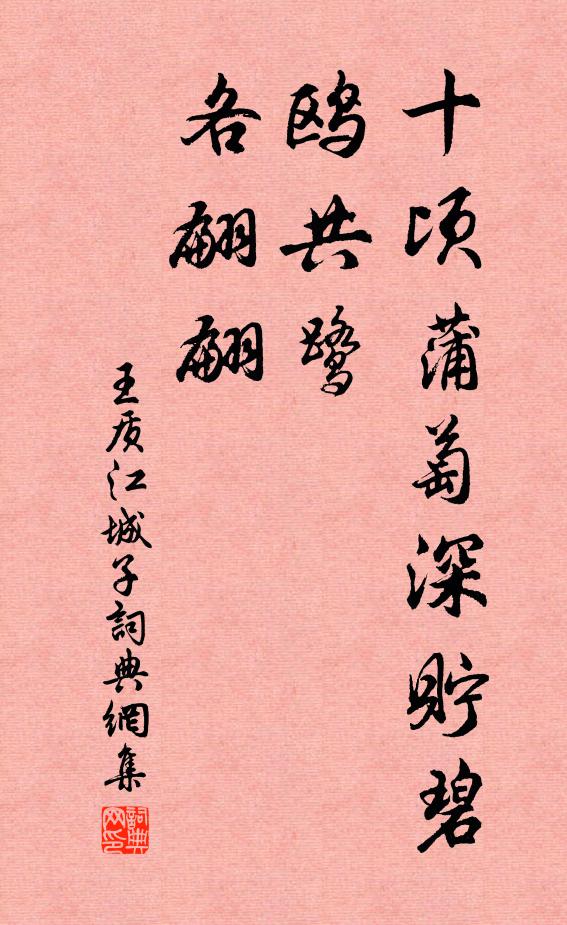 十顷蒲萄深貯碧
鸥共鹭
各翩翩
王质江城子詞典網集
詞典网印